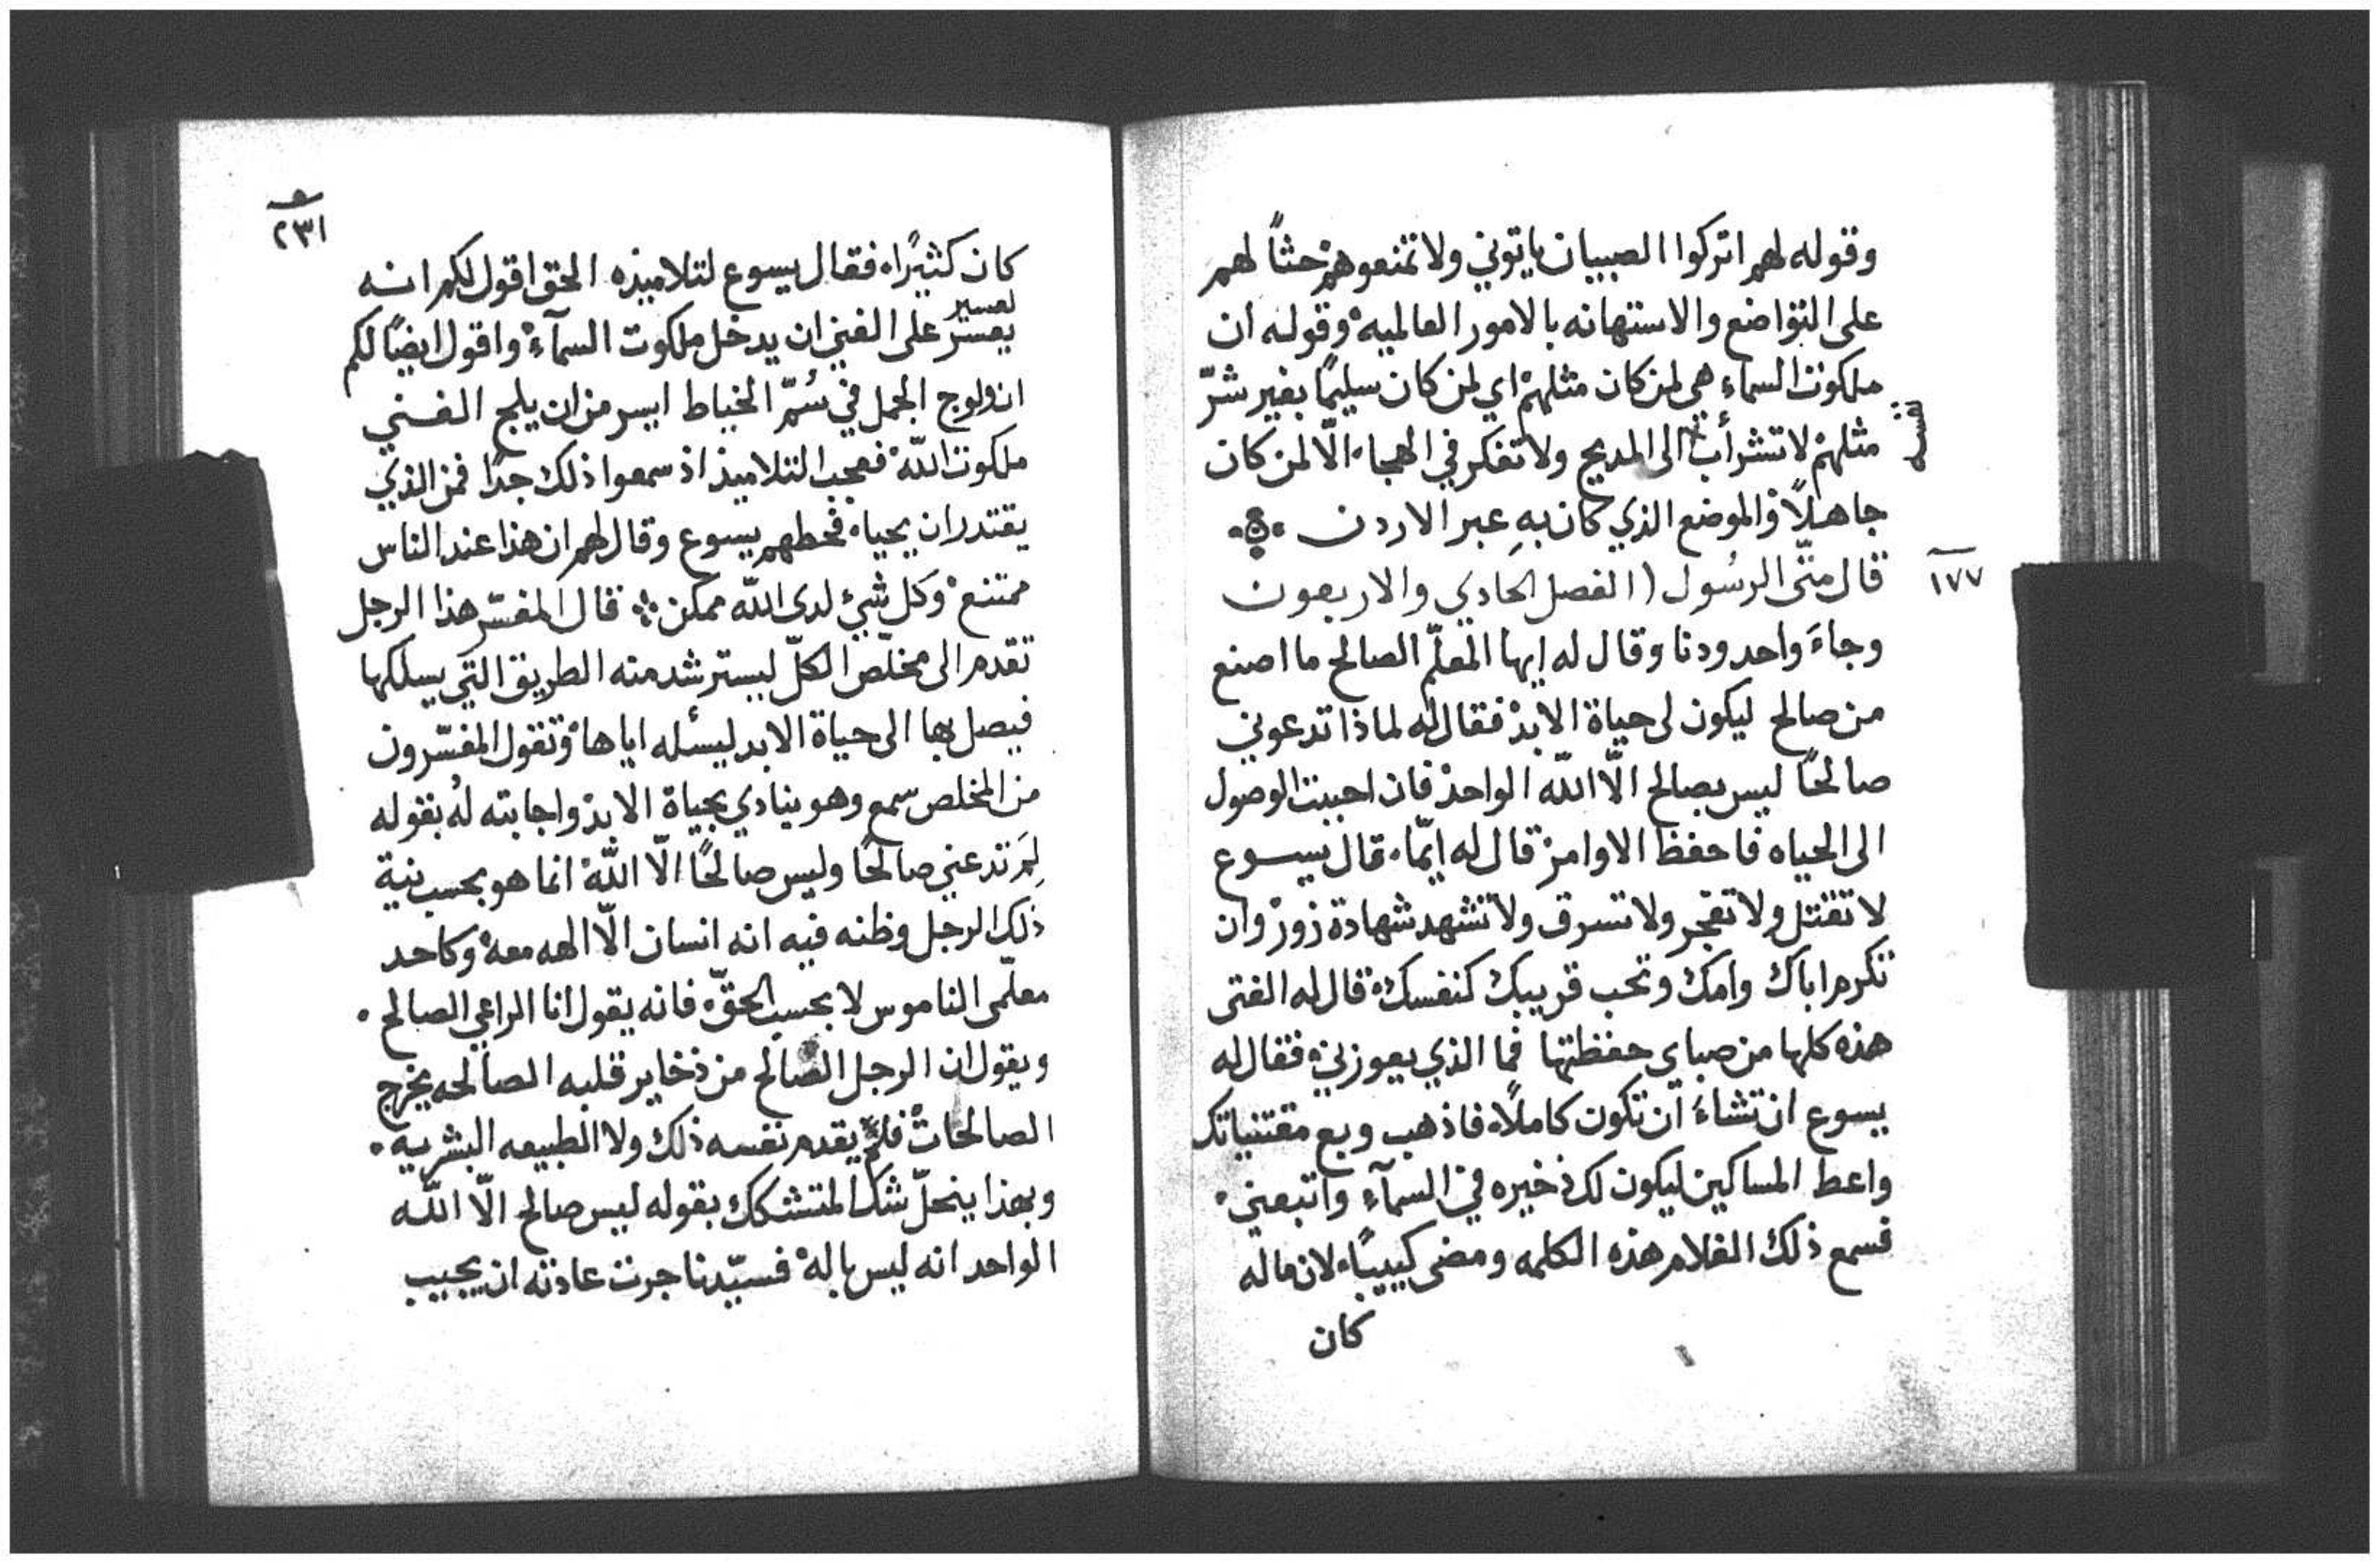 وقوله لهم اتركوا الصبيان ياتوني ولا تمنعوهم حثاً لهم
على التواضع والاستهانه بالامور العالميه وقوله ان
ملكوت السماء هي لمن كان مثلهم اي لمن كان سليمًا بغير شرّ
مثلهم لا تشرأب الى المديح ولا تفكر في الهجاء الّا لمن كان
جاهلاً والموضع الذي كان به عبر الاردن
١٧٧
قال متّى الرسُول (الفصل الحادي والاربعون
وجاءَ واحد ودنا وقال له ايها المعلّم الصالح ما اصنع
من صالح ليكون لى حياة الابد فقال له لماذا تدعوني
صالحًا ليس بصالح الّا الله الواحد فان احببت الوصول
الى الحياه فاحفظ الاوامر قال له ايّما قال يسوع
لا تقتل ولا تفجر ولا تسرق ولا تشهد شهادة زور وان
تكرم اباك وامك وتحب قريبك كنفسك قال له الفتى
هذه كلها من صباي حفظتها فما الذي يعوزني فقال له
يسوع ان تشاءَ ان تكون كاملاً فاذهب وبع مقتنياتك
واعط المساكين ليكون لك ذخيره في السمآء واتبعني
فسمع ذلك الغلام هذه الكلمه ومضى كييبًا لان ماله
كان
٢٣١
كان كثيرًا فقال يسوع لتلاميذه الحق اقول لكم انه
لعسير
يعسر على الغني ان يدخل ملكوت السمآء واقول ايضًا لكم
ان ولوج الجمل في سُمّ الخياط ايسر من ان يلج الغني
ملكوت الله فعجب التلاميذ اذ سمعوا ذلك جدًا فمن الذي
يقتدر ان يحيا فحطهم يسوع وقال لهم ان هذا عند الناس
ممتنع وكل شيء لدى الله ممكن قال المفسّر هذا الرجل
تقدم الى مخلّص الكلّ ليسترشد منه الطريق التي يسلكها
فيصل بها الى حياة الابد ليسئله اياها وتقول المفسّرون
من المخلص سمع وهو ينادي بحياة الابد واجابته لهُ بقوله
لِمَ تدعني صالحًا وليس صالحًا الّا الله انما هو بحسب نية
ذلك الرجل وظنه فيه انه انسان الّا اله معه وكاحد
معلّمى الناموس لا بحسب الحقّ فانه يقول انا الراعي الصالح
ويقول ان الرجل الصالح من ذخاير قلبه الصالحه يخرج
الصالحات فلم يقدم نفسه ذلك ولا الطبيعه البشريه
وبهذا ينحلّ شك المتشكك بقوله ليس صالح الّا الله
الواحد انه ليس باله فسيّدنا جرت عادته ان يجيب